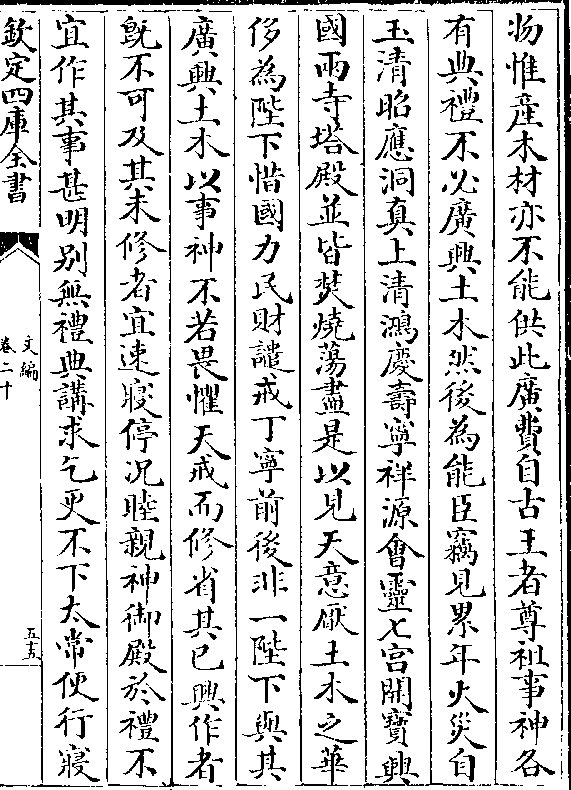 物惟産木材亦不能供此廣費自古王者尊祖事神各
有典禮不必廣興土木然後為能臣竊見累年火災自
玉清昭應洞真上清鴻慶壽寧祥源會靈七宮開寶興
國兩寺塔殿並皆焚燒蕩盡是以見天意厭土木之華
侈為陛下惜國力民財譴戒丁寧前後非一陛下與其
廣興土木以事神不若畏懼天戒而修省其已興作者
旣不可及其未修者宜速寢停况睦親神御殿於禮不
宜作其事甚明别無禮典講求乞更不下太常便行寢
欽定四庫全書
文編
卷二十
五十五